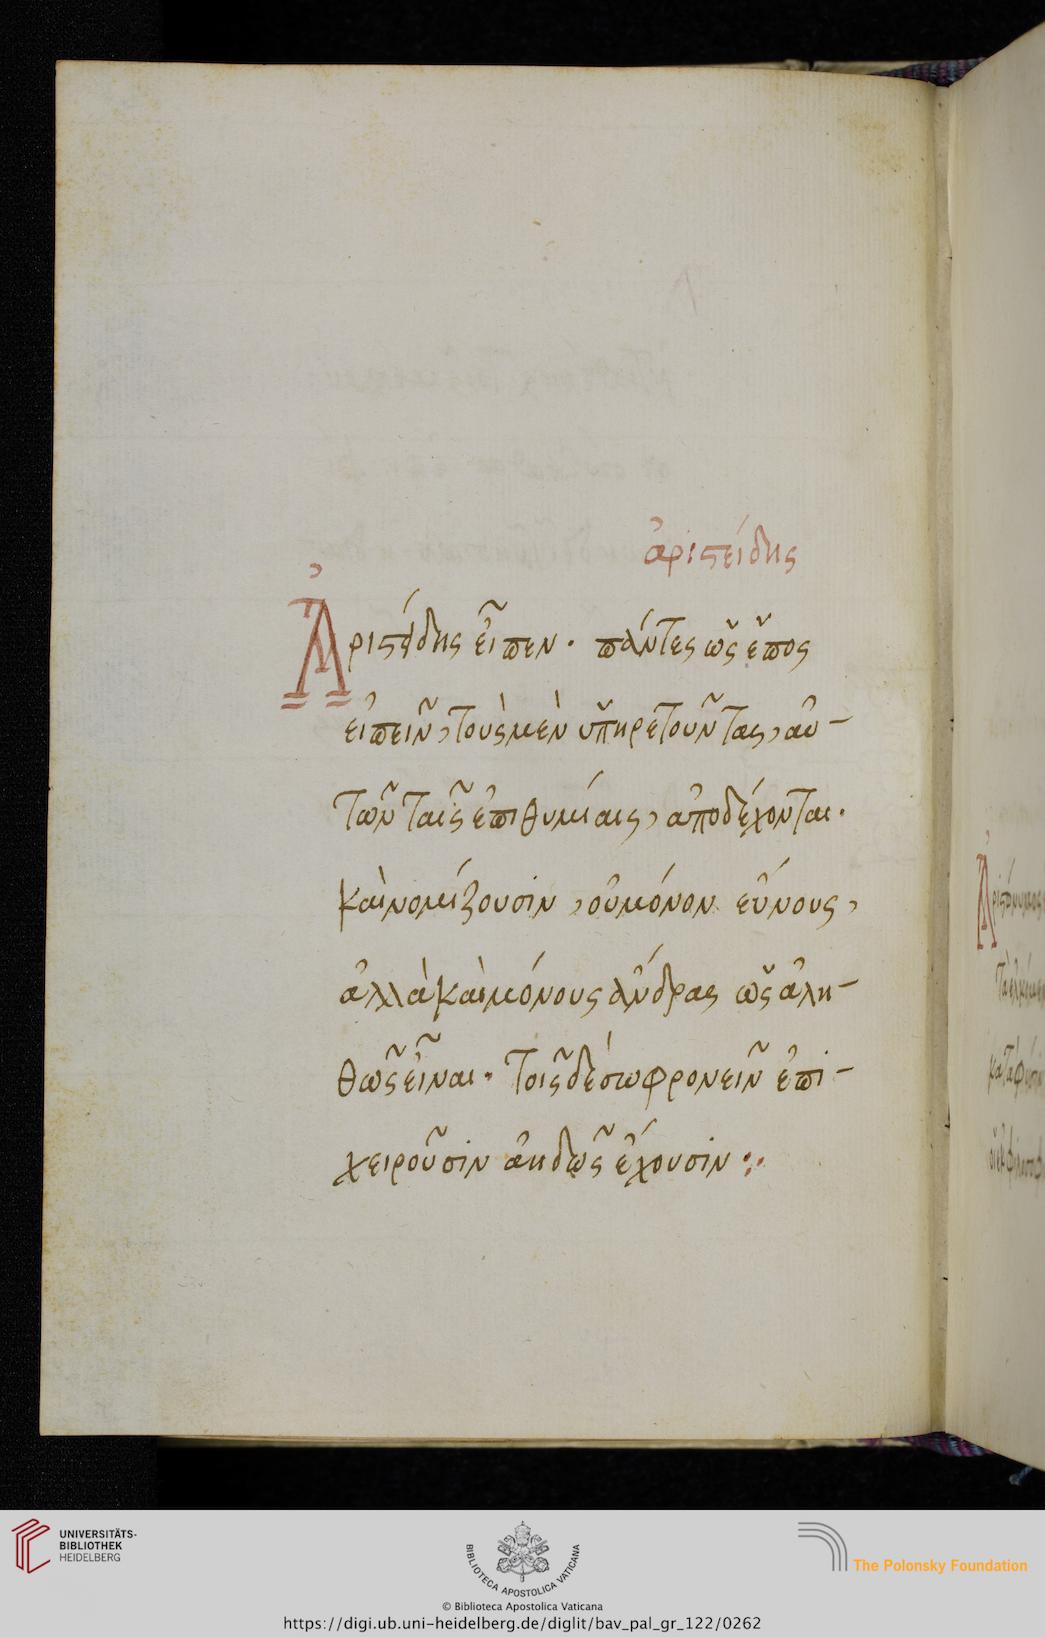 ἀριστείδης
Ἀριστείδης εἶπεν · πάντες ὡς ἔπος
εἰπεῖν, τοὺς μὲν ὑπηρετοῦντας, αὐ-
τῶν ταῖς ἐπιθυμίαις, ἀποδέχονται ·
καὶ νομίζουσιν, οὐ μόνον εὔνους,
ἀλλὰ καὶ μόνους ἄνδρας ὡς ἀλη-
θῶς εἶναι · τοῖς δὲ σωφρονεῖν ἐπι-
χειροῦσιν ἀηδῶς ἔχουσιν :·
UNIVERSITÄTS-
BIBLIOTHEK
HEIDELBERG
BIBLIOTECA APOSTOLICA VATICANA
The Polonsky Foundation
© Biblioteca Apostolica Vaticana
https://digi.ub.uni-heidelberg.de/diglit/bav_pal_gr_122/0262